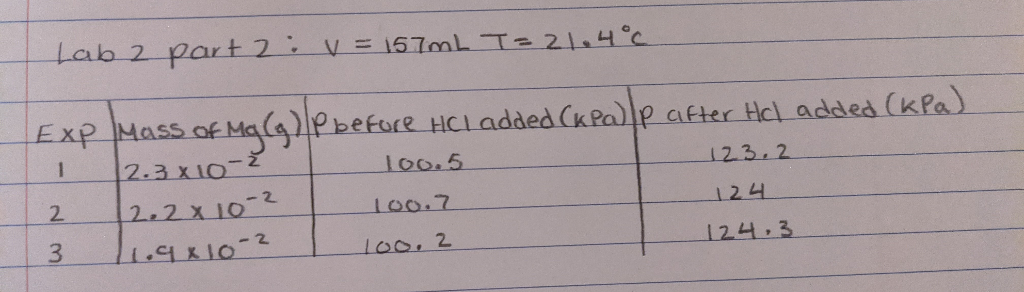 Lab 2 part 2: V = 157mL T= 21.4°C
Exp Mass of Mg(g) P before HCl added (kPa) P after Hcl added (kPa)
1 2.3 x 10⁻² 100.5 123.2
2 2.2 x 10⁻² 100.7 124
3 1.9 x 10⁻² 100.2 124.3